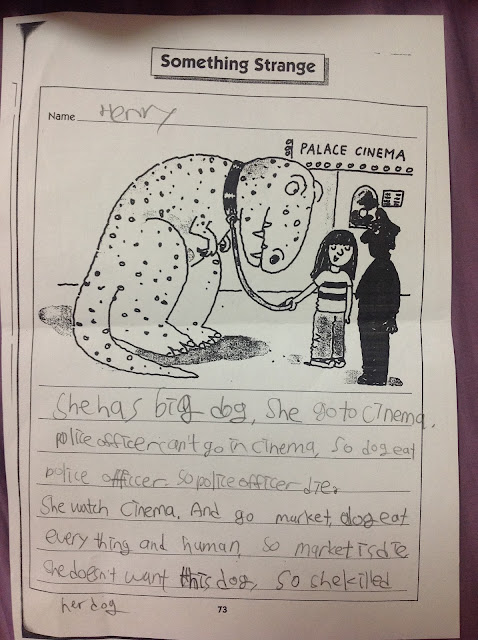 Something Strange
Name Henry
PALACE CINEMA
She has big dog, She go to cinema.
police officer can't go in cinema, so dog eat
police officer. so police officer die.
She watch cinema. And go market, dog eat
every thing and human, so market is die
She doesn't want this dog, so she killed
her dog
73